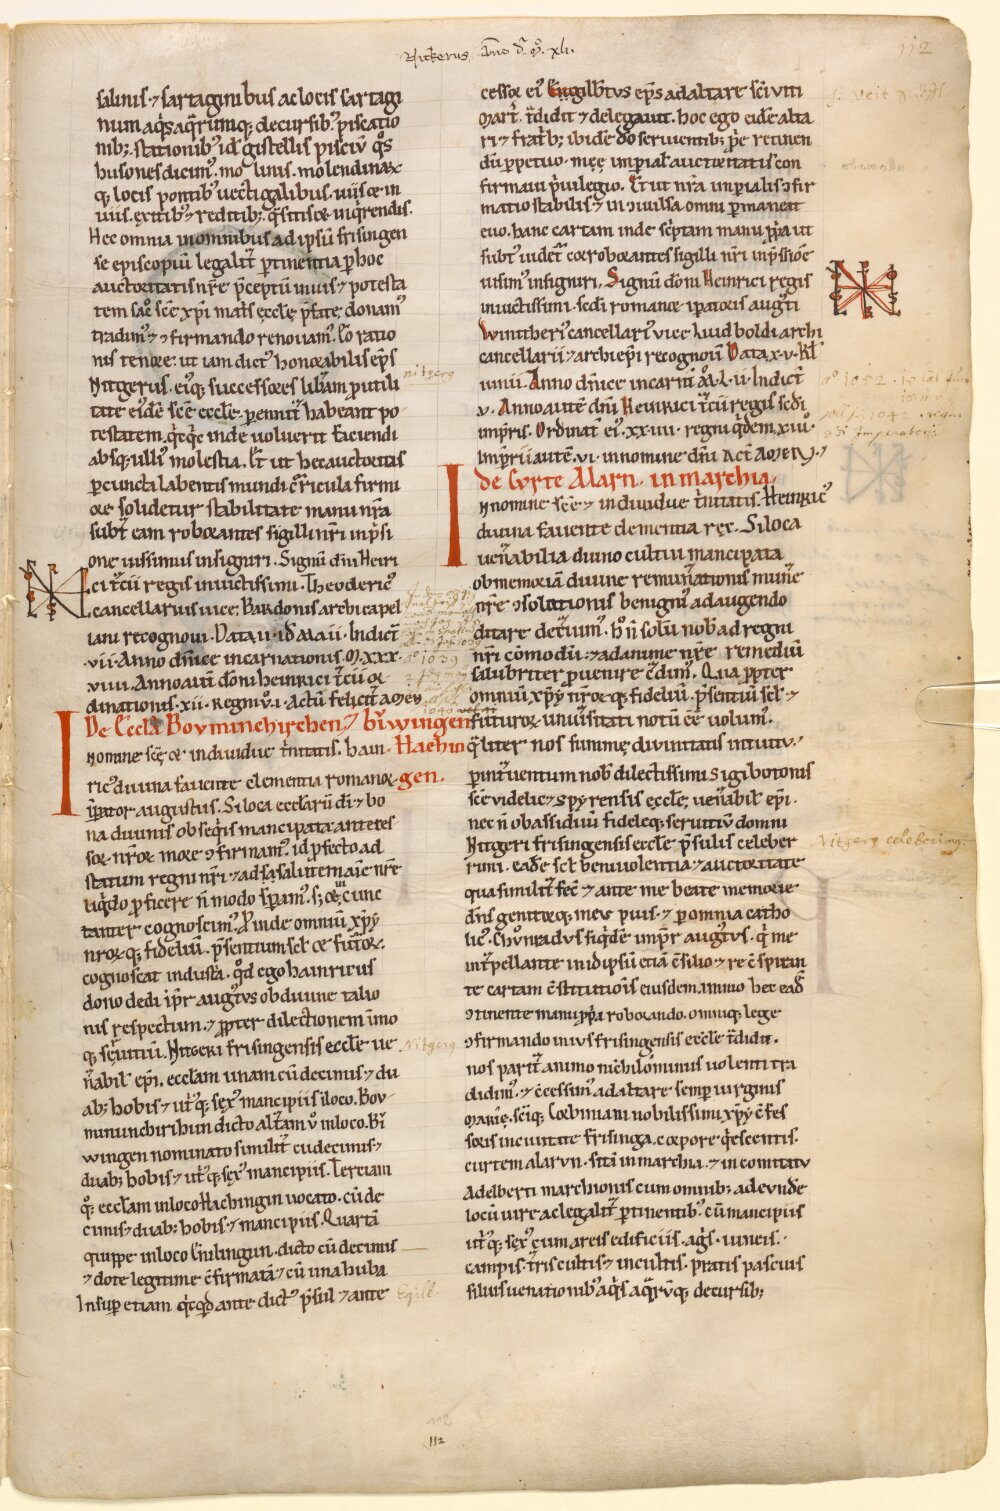 Nitkerus Año d. M. xli.
112
salinis ⁊ sartaginibus ac locis sartagi
num aq̇s aq̇rumq; decursib; piscatio
nib; stationib; id ē gistellis pisciū q̊s
husones dicim᷒. molinis. molendinaꝝ
q; locis pontib᷒ uectigalibus. uiis ⁊ in
uiis. exitib᷒ ⁊ reditib;. q̄sitis ⁊ inq̇rendis.
Hec omnia in omnibus ad ipsū frisingen
se episcopiū legalit̄ ꝑtinentia ꝑ hoc
auctoritatis nr̄e p̄ceptū inuis ⁊ potesta
tem sac̄ sc̄e xp̄i mat̄s ęcclę p̄state donam᷒
tradim᷒ ⁊ ɔfirmando renouam᷒. Eo ratio
nis tenore. ut iam dict᷒ honorabilis ep̄s
Nitgerus. ei᷒q; successores lib̄am ꝑ utili
tate eiusdē sc̄e eccłe. ꝑennit̄ habeant po
testatem. q̇cq̇c inde uoluerit faciendi
absq; ulli᷒ molestia. Et ut hec auctoritas
ꝑ cuncta labentis mundi c̄ricula firmi
ore solidetur stabilitate manu nr̄a
subt᷒ eam roborantes sigilli nr̄i inp̄si
one iussimus insigniri. Signū dn̄i Heinr
ici t̄cii regis inuictissimi. Theoderic᷒
cancellarius uice Bardonis archicapel
lani recognoui. Data ii. id Maii. Indict̄
.vii. Anno dn̄ice incarnationis. M.xxx.
viiii. Anno aut̄ dom̄i heinrici t̄cii or
dinationis. xii. Regni ů.i. Actū felicit̄ amen
De Eccła Bovminchirchen ⁊ bīwingen
Hachin
gen.
In nomine scę ⁊ indiuidue t̄nitatis. hain
ric᷒ diuina fauente clementia romanoꝝ
ip̄ator augustus. Si loca ecclarū dī ⁊ bo
na diuinis obseq̇is mancipata anteces
soꝝ nr̄oꝝ more ɔfirmam᷒. id ꝓfecto ad
statum regni nr̄i ⁊ ad salutem aīe nr̄e
liq̇do ꝓficere ñ modo sꝑam᷒. s; ⁊ cunc
tanter cognoscim᷒. Proinde omniū xp̄i
nroꝝ q; fidelium. p̄sentium scł ⁊ futoꝝ.
cognoscat industa. q̊d ego hainricus
dono dedi ip̄r augustus ob diuine talio
nis respectum. ⁊ ꝓpter dilectionem immo
q; seruitiū. Nitgeri frisingensis eccłe ue
n̄abił epi. ecclam unam cū decimis ⁊ du
ab; hobis ⁊ utq; sex᷒ mancipiis iloco. Bov
minunchirihun dicto alt̄am ů in loco. Bi
wingen nominato similit̄ cū decimis ⁊
duab; hobis ⁊ utq; sex᷒ mancipiis. Terciam
q̊. ecclam in loco Hachingin uocato. cū de
cimis ⁊ duab; hobis ⁊ mancipiis. Quartā
quippe in loco dicto cū decimis
⁊ dote legitime ɔfirmatā ⁊ cū una huba
Insuꝑ etiam q̇cq̇d ante dict᷒ p̄sul ⁊ ante
nitgerg
Nitgerg
Egilb.
112
cessor ei᷒ Engilbtvs ep̄s ad altare sc̄i uiti
mar̄t. t̄didit ⁊ delegauit. hoc ego eidē alta
ri ⁊ frat̄b; ibidē dō seruientib; ꝑe retinen
dū ꝑpetuo. meę imperiał auctoritatis con
firmaui p̄uilegio. Et ut nr̄a imperialis ɔfir
matio stabilis ⁊ in ɔuulsa omni ꝑmaneat
euo. hanc cartam inde sc̄ptam manu ꝓpa ut
subt᷒ uidet̄ corroborantes sigilli nr̄i inp̄ssiōe
iusim᷒ insigniri. Signū dōni Heinrici regis
inuictissimi. sc̄di romanor ip̄atoris aug᷒ti
Wintheri᷒ cancellari᷒ uice Luidboldi archi
cancellarii ⁊ archiep̄i recognoui Data x.v. kł
iunii. Anno dn̄ice incarnī M. L. ii. Indict̄
v. Anno autē dn̄i Heinrici t̄cii regis sc̄di
imp̄ris. Ordinat̄ ei᷒. xx. iiii. regni q̇dem. xiii᷒.
Imp̄rii autē. vi. in nomine dn̄i Act̄ Amen.
de Cvrte Alarn. in marchia.
In nomine sc̄ę ⁊ indiuidue t̄nitatis. Heinric᷒
diuina fauente clementia rex. Si loca
uen̄abilia diuino cultui mancipata
ob memoriā diuine remun̄ationis mun̄e
nr̄e ɔsolationis benigni᷒ ad augendo
ditare decreuim᷒. hoc ñ solū nob̄ ad regni
nr̄i cōmodū. ⁊ ad anime nr̄e remediū
salubriter ꝓuenire c̄dim᷒. Qua ꝓpter
omniū xp̄i nr̄oꝝ q; fideliū. p̄sentiū scł ⁊
futuroꝝ. uniu̇sitati notū ēē uolum᷒.
q̄liter nos summę diuinitatis intuitu.
ꝑ int̄uentum nob̄ dilectissimi sigibotonis
sc̄e videlic᷒ spyrensis ęccłę uen̄abił ep̄i.
nec n̄ ob assidiuū fidelecq; seruitiū domni
Nitgeri frisingensis eccłe p̄sulis celeber
rimi. eadē scł beniuolentia ⁊ auctoritate
qua similit̄ fec̄ ⁊ ante me beate memorie
dn̄s genitorq; mevs pius. ⁊ ꝑ omnia catho
lic᷒. Chv̊nradvs siq̇dē imp̄r aug᷒tvs. q̇ me
int̄pellante in id ipsū etiā ɔsilio ⁊ re ɔspiran
te cartam ɔstitutiōis eiusdem. immo hec eađ
ɔtinente manu ꝓpa roborando. omniq; lege
ɔfirmando iuivs frisingensis eccłe t̄didit.
nos parit̄ animo nichilominus uolenti tra
didim᷒. ⁊ ɔcessim᷒ ad altare semꝑ uirginis
Marię. sc̄iq; Corbiniani nobilissimi xp̄i ɔfes
soris in ciuitate frisinga. corpore q̇escentis.
curtem alarvn. sitā in marchia. ⁊ in comitatv
Adelberti marchionis cum omnib; ad evnde
locū iure ac legalit̄ ꝑtinentib᷒. cū mancipiis
ut̄q; sex᷒ cum areis edificiis. ag̊s. uineis.
campis. t̄ris cultis ⁊ incultis. pratis pascuis
siluis uenationib᷒ aq̇s aq̇rv̄q; decursib;
S. Veit
aº 1052. 15 Cal.
Nitgerg celeberrimg.